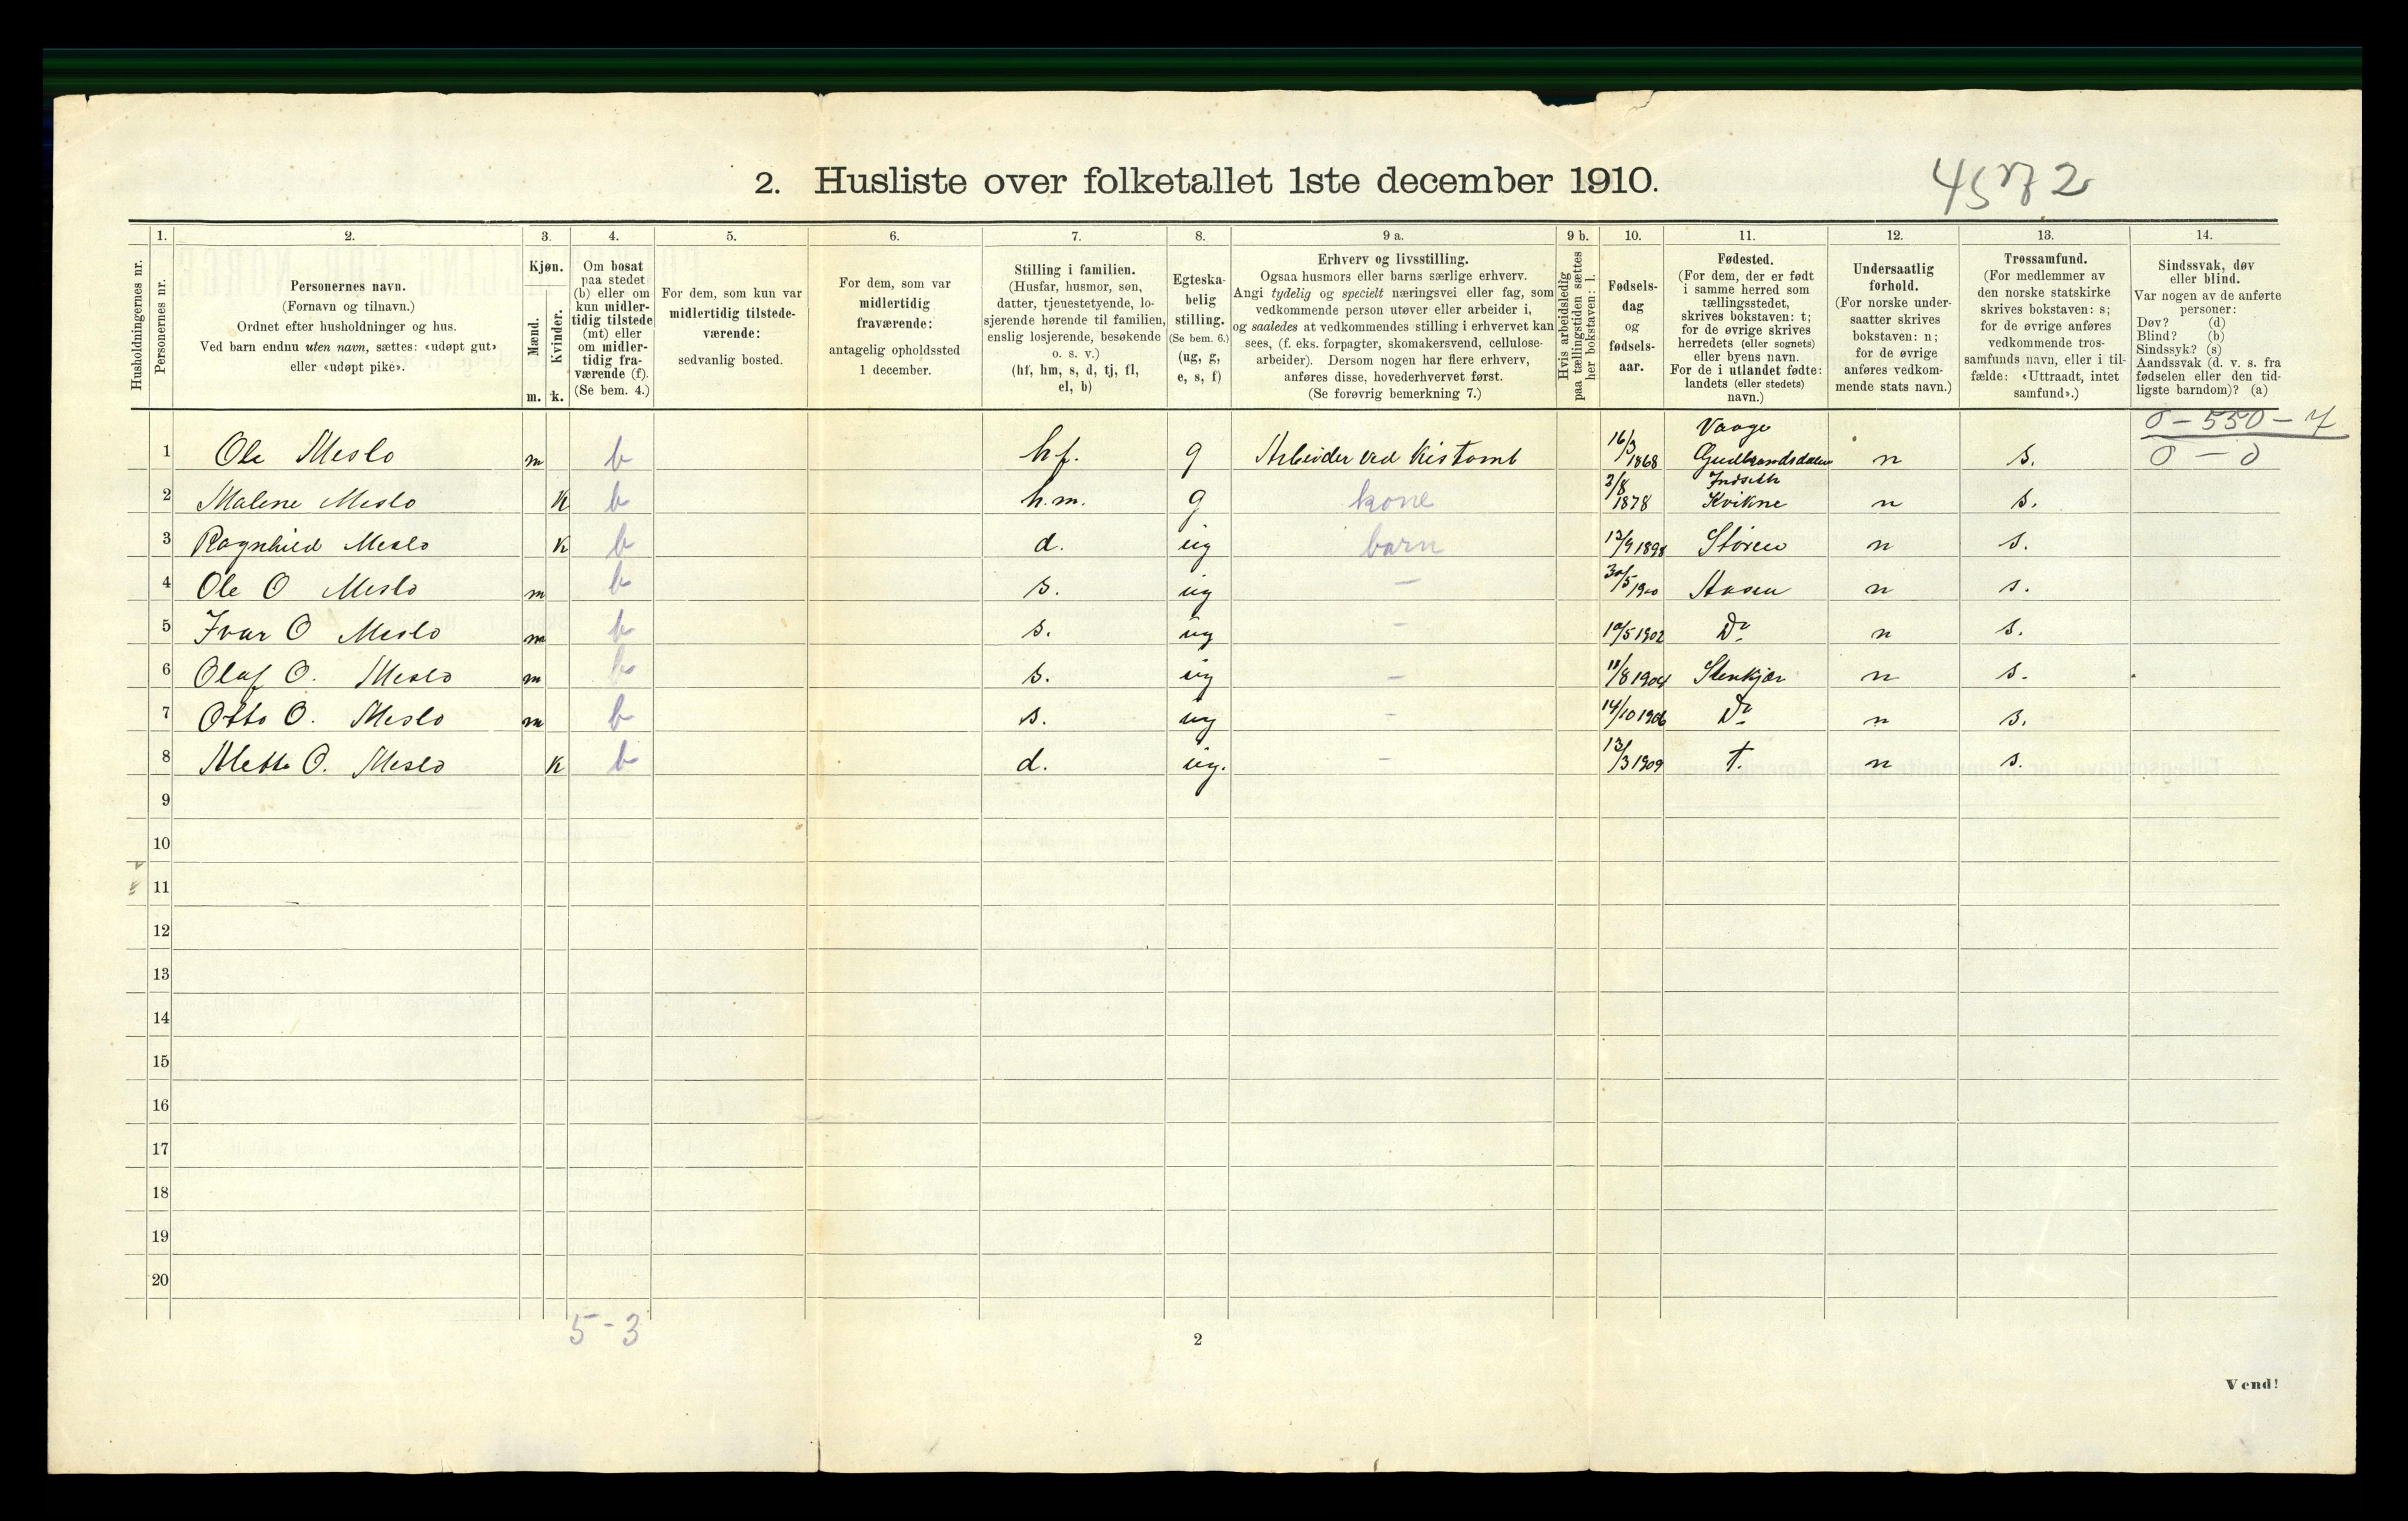 2. Husliste over folketallet 1ste december 1910.
1. 2. 3. 4. 5. 6. 7. 8. 9 a. 9 b. 10. 11. 12. 13. 14.
Husholdningernes nr.
Personernes nr.
Personernes navn.
(Fornavn og tilnavn.)
Ordnet efter husholdninger og hus.
Ved barn endnu uten navn, sættes: «udøpt gut»
eller «udøpt pike».
Kjøn.
Mænd.
Kvinder.
m. k.
Om bosat
paa stedet
(b) eller om
kun midler-
tidig tilstede
(mt) eller
om midler-
tidig fra-
værende (f).
(Se bem. 4.)
For dem, som kun var
midlertidig tilstede-
værende:
sedvanlig bosted.
For dem, som var
midlertidig
fraværende:
antagelig opholdssted
1 december.
Stilling i familien.
(Husfar, husmor, søn,
datter, tjenestetyende, lo-
sjerende hørende til familien,
enslig losjerende, besøkende
o. s. v.)
(hf, hm, s, d, tj, fl,
el, b)
Egteska-
belig
stilling.
(Se bem. 6.)
(ug, g,
e, s, f)
Erhverv og livsstilling.
Ogsaa husmors eller barns særlige erhverv.
Angi tydelig og specielt næringsvei eller fag, som
vedkommende person utøver eller arbeider i,
og saaledes at vedkommendes stilling i erhvervet kan
sees, (f. eks. forpagter, skomakersvend, cellulose-
arbeider). Dersom nogen har flere erhverv,
anføres disse, hovederhvervet først.
(Se forøvrig bemerkning 7.)
Hvis arbeidsledig
paa tællingstiden sættes
her bokstaven: l.
Fødsels-
dag
og
fødsels-
aar.
Fødested.
(For dem, der er født
i samme herred som
tællingsstedet,
skrives bokstaven: t;
for de øvrige skrives
herredets (eller sognets)
eller byens navn.
For de i utlandet fødte:
landets (eller stedets)
navn.)
Undersaatlig
forhold.
(For norske under-
saatter skrives
bokstaven: n;
for de øvrige
anføres vedkom-
mende stats navn.)
Trossamfund.
(For medlemmer av
den norske statskirke
skrives bokstaven: s;
for de øvrige anføres
vedkommende tros-
samfunds navn, eller i til-
fælde: «Uttraadt, intet
samfund».)
Sindssvak, døv
eller blind.
Var nogen av de anførte
personer:
Døv? (d)
Blind? (b)
Sindssyk? (s)
Aandssvak (d. v. s. fra
fødselen eller den tid-
ligste barndom)? (a)
0 - 550 - 7
1 Ole Meslo m b hf. g Arbeider ved Kistomt 16/3 1868 Vaage Gudbrandsdalen n s. 0 - 0
2 Malene Meslo K b h.m. g kone 2/8 1878 Indseth Kvikne n s.
3 Ragnhild Meslo K b d. ug barn 1898 Støren n s.
4 Ole O Meslo m b s. ug - 30/5 1900 Aasen n s.
5 Ivar O Meslo m b s. ug - 10/5 1902 Do n s.
6 Olaf O. Meslo m b s. ug - 11/8 1904 Stenkjær n s.
7 Otto O. Meslo m b s. ug - 14/10 1906 Do n s.
8 Mette O. Meslo K b d. ug. - 13/3 1909 t. n s.
9
10
11
12
13
14
15
16
17
18
19
20
5 - 3
2
Vend!